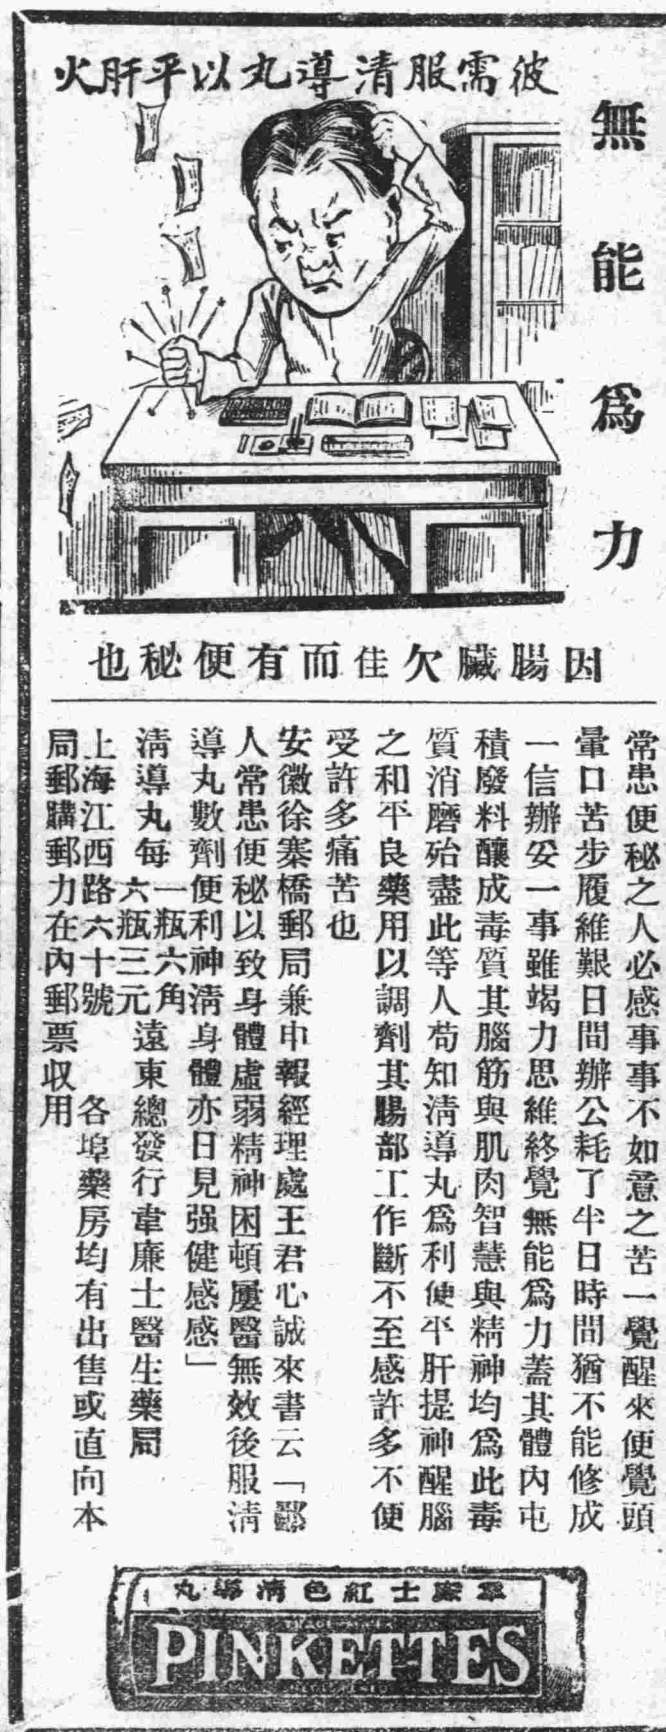 彼需服清導丸以平肝火
無能爲力
因腸臟欠佳而有便秘也
常患便秘之人必感事事不如意之苦一覺醒來便覺頭
暈口苦步履維艱日間辦公耗了半日時間猶不能修成
一信辦妥一事雖竭力思維終覺無能爲力蓋其體內屯
積廢料釀成毒質其腦筋與肌肉智慧與精神均爲此毒
質消磨殆盡此等人苟知清導丸爲利便平肝提神醒腦
之和平良藥用以調劑其腸部工作斷不至感許多不便
受許多痛苦也
安徽徐寨橋郵局兼申報經理處王君心誠來書云「鄙
人常患便秘以致身體虛弱精神困頓屢醫無效後服清
導丸數劑便利神清身體亦日見强健感感」
清導丸每一瓶六角六瓶三元 遠東總發行韋廉士醫生藥局
上海江西路六十號 各埠藥房均有出售或直向本
局郵購郵力在內郵票收用
韋廉士紅色清導丸
PINKETTES